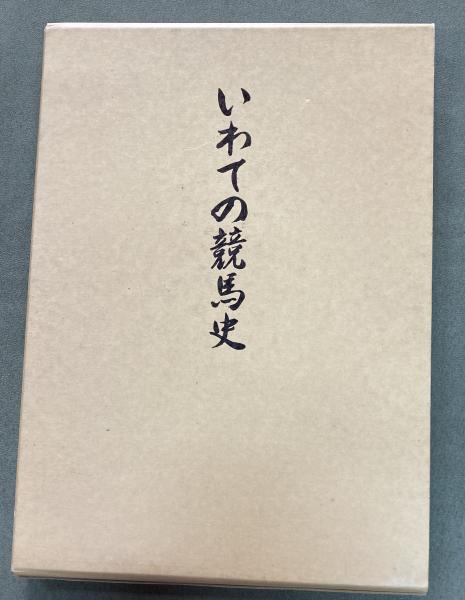 いわての競馬史